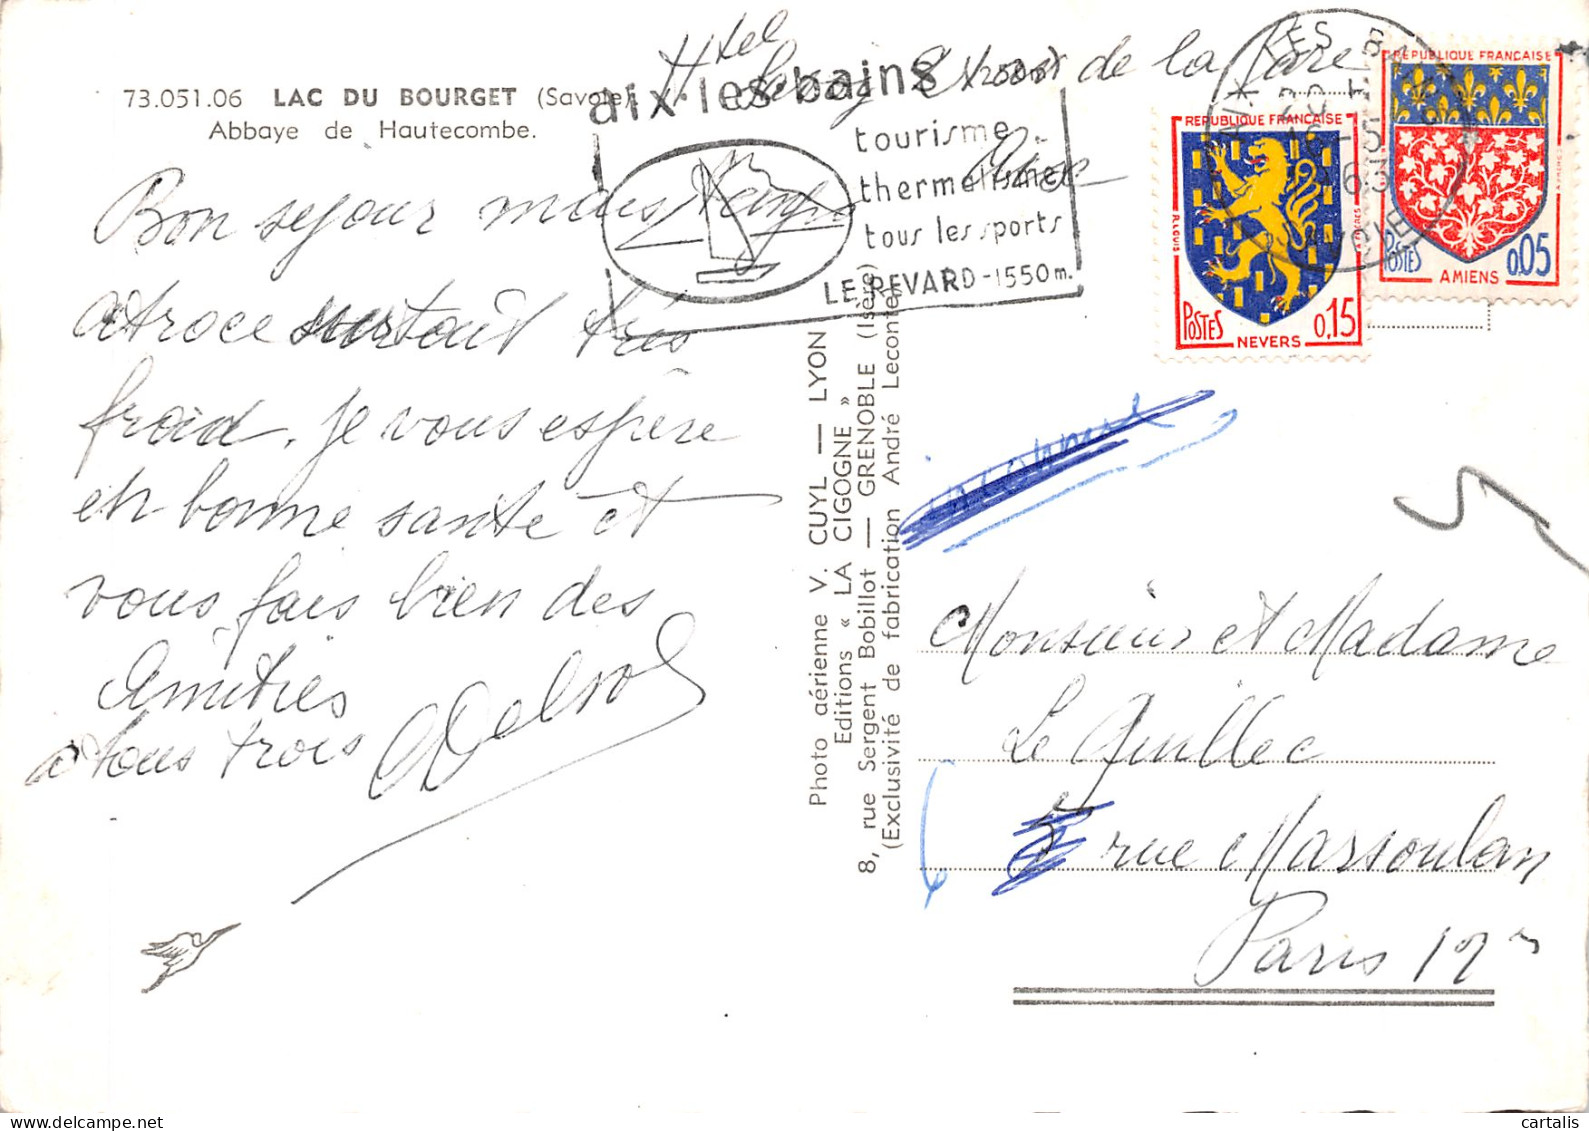 73.051.06 LAC DU BOURGET (Savoie)
Abbaye de Hautecombe.
Htel Savoy de la Gare
Aix
aix·les·bains
tourisme
thermalisme
tous les sports
LE REVARD - 1550 m.
Bon sejour mais temps
atroce surtout très
froid. Je vous espère
en bonne santé et
vous fais bien des
Amitiés
a tous trois
Photo aérienne V. CUYL — LYON
Editions « LA CIGOGNE »
8, rue Sergent Bobillot — GRENOBLE (Isère)
(Exclusivité de fabrication André Leconte)
REPUBLIQUE FRANÇAISE
POSTES 0,15
NEVERS
REPUBLIQUE FRANÇAISE
POSTES 0,05
AMIENS
AIX LES BAINS
16-5
1963
SAVOIE
inconnu
Monsieur et Madame
Le Guillec
5 rue Marsoulan
Paris 12
cartalis